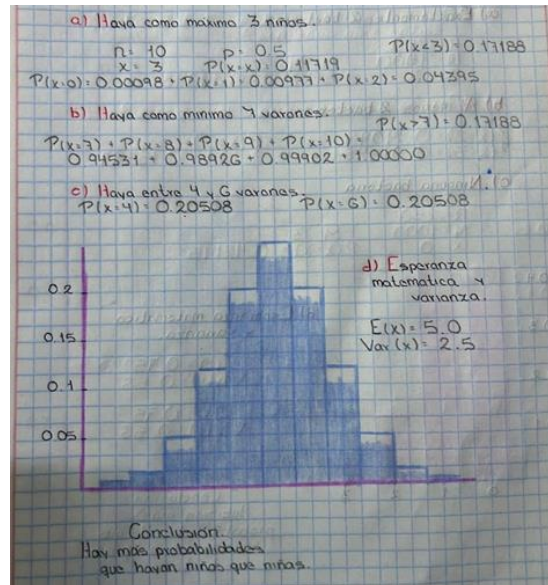 a) Haya como máximo 3 niños.
n = 10 p = 0.5 P(x<3) = 0.17188
x = 3 P(x=x) = 0.11719
P(x=0) = 0.00098 + P(x=1) = 0.00977 + P(x=2) = 0.04395
b) Haya como mínimo 7 varones.
P(x>7) = 0.17188
P(x=7) + P(x=8) + P(x=9) + P(x=10) =
0.94531 + 0.98926 + 0.99902 + 1.00000
c) Haya entre 4 y 6 varones.
P(x=4) = 0.20508 P(x=6) = 0.20508
d) Esperanza
matematica y
varianza.
E(x) = 5.0
Var(x) = 2.5
0.2
0.15
0.1
0.05
Conclusión
Hay más probabilidades
que hayan niños que niñas.